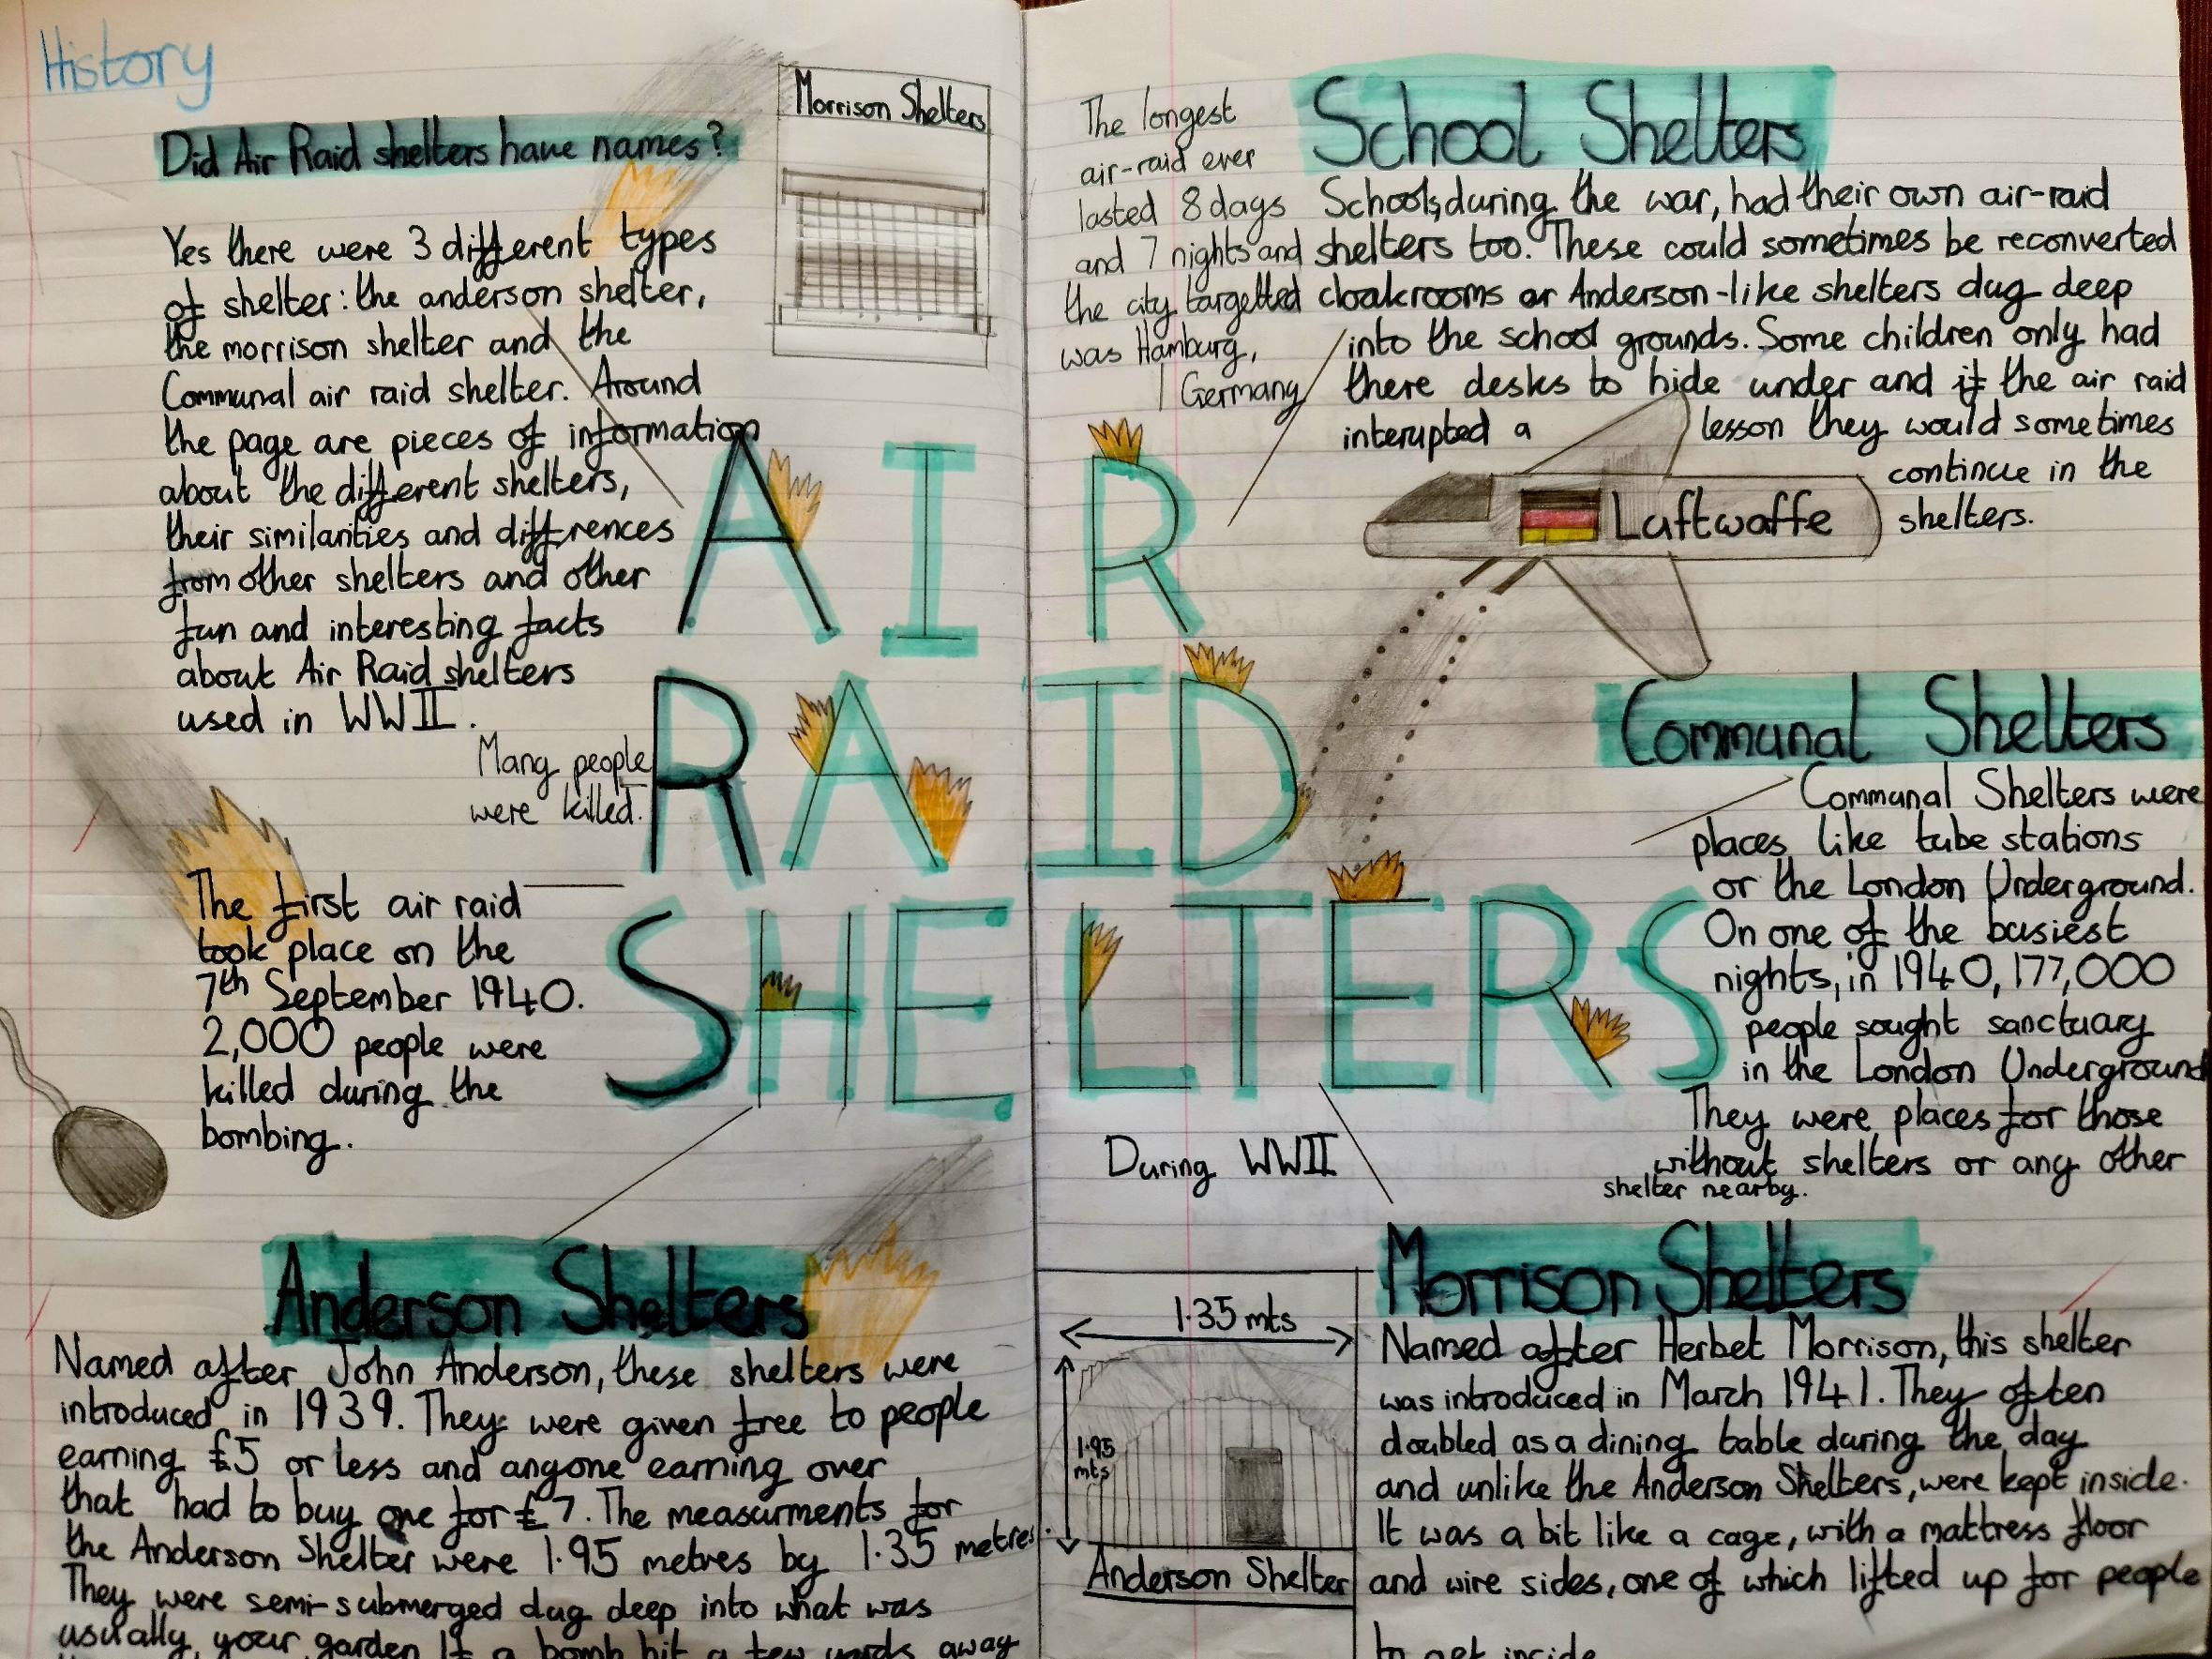 History
Did Air Raid shelters have names?
Yes there were 3 different types
of shelter: the anderson shelter,
the morrison shelter and the
Communal air raid shelter. Around
the page are pieces of information
about the different shelters,
their similarities and diffrences
from other shelters and other
fun and interesting facts
about Air Raid shelters
used in WWII.
Morrison Shelters
Many people
were killed.
The first air raid
took place on the
7th September 1940.
2,000 people were
killed during the
bombing.
AIR
RAID
SHELTERS
During WWII
Anderson Shelters
Named after John Anderson, these shelters were
introduced in 1939. They were given free to people
earning £5 or less and anyone earning over
that had to buy one for £7. The measurments for
the Anderson Shelter were 1.95 metres by 1.35 metres.
They were semi-submerged dug deep into what was
usually your garden. If a bomb hit a few yards away
The longest
air-raid ever
lasted 8 days
and 7 nights and
the city targetted
was Hamburg,
Germany
School Shelters
Schools, during the war, had their own air-raid
shelters too. These could sometimes be reconverted
cloakrooms or Anderson-like shelters dug deep
into the school grounds. Some children only had
there desks to hide under and if the air raid
interupted a lesson they would sometimes
continue in the
shelters.
Luftwaffe
Communal Shelters
Communal Shelters were
places like tube stations
or the London Underground.
On one of the busiest
nights, in 1940, 177,000
people sought sanctuary
in the London Underground
They were places for those
without shelters or any other
shelter nearby.
1.35 mts
1.95
mts
Anderson Shelter
Morrison Shelters
Named after Herbet Morrison, this shelter
was introduced in March 1941. They often
doubled as a dining table during the day
and unlike the Anderson Shelters, were kept inside.
It was a bit like a cage, with a mattress floor
and wire sides, one of which lifted up for people
to get inside